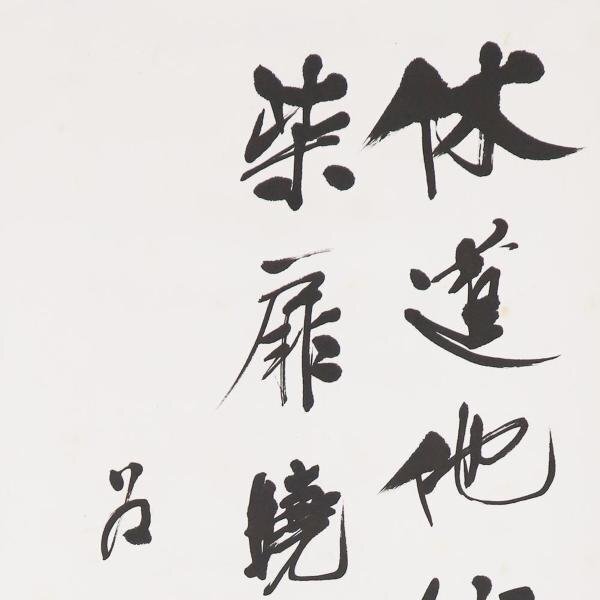 休道他
柴扉曉